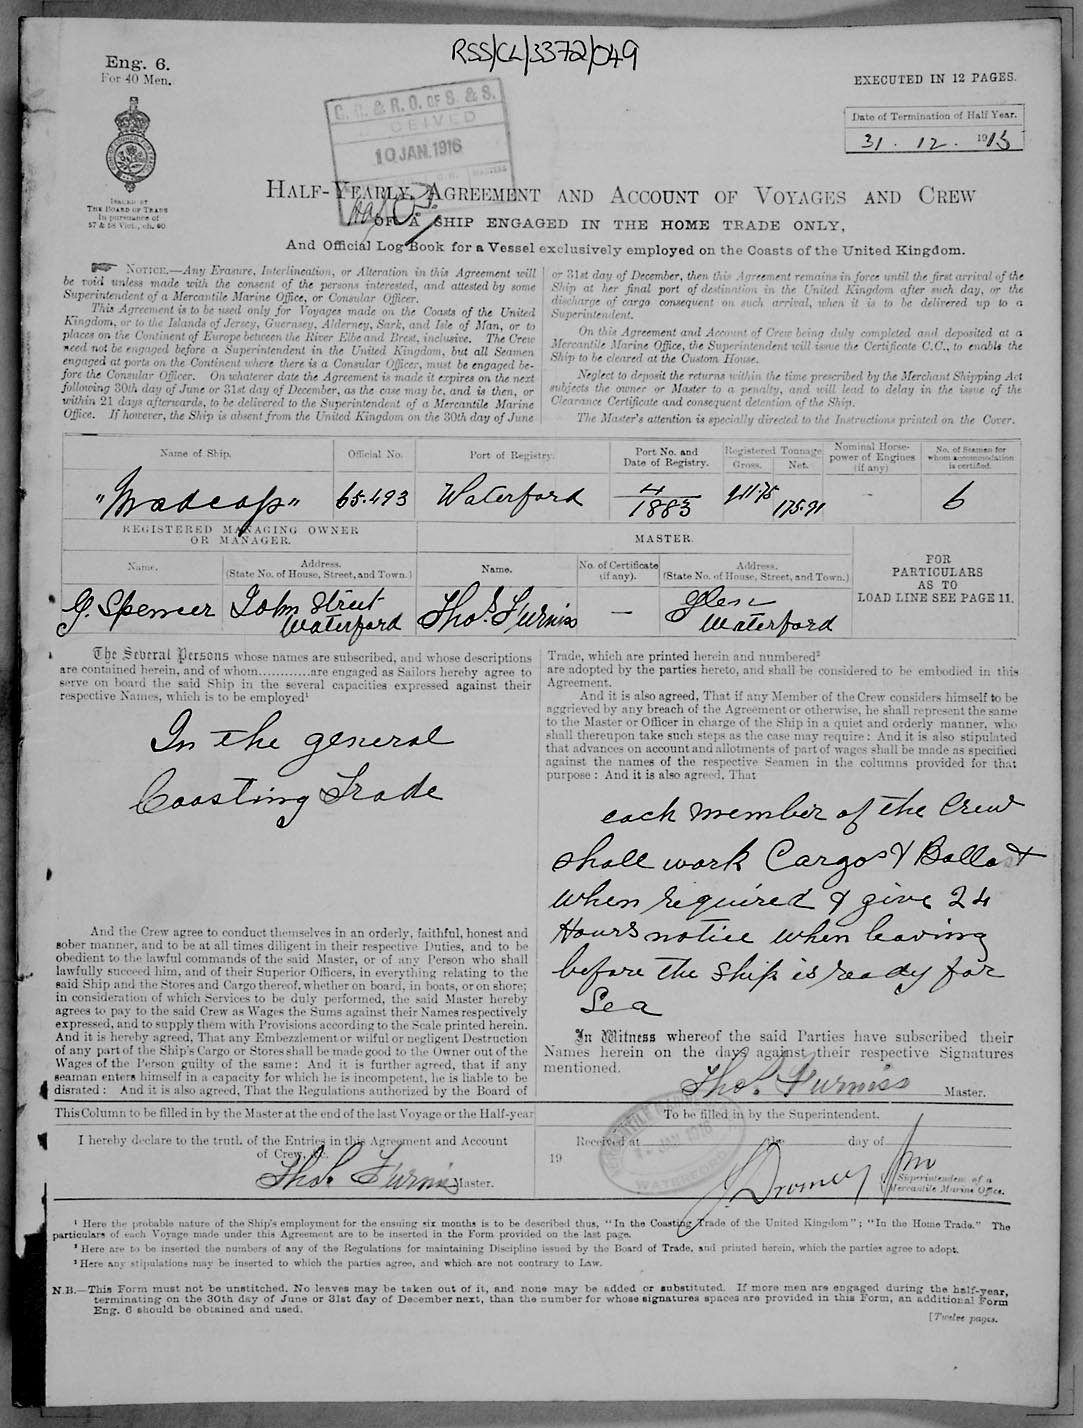 RSS/CL/3372/049
Eng. 6.
For 40 Men.
EXECUTED IN 12 PAGES.
Date of Termination of Half Year.
31 . 12 . 1915
R. O. OF S. & S.
10 JAN. 1916
ISSUED BY
THE BOARD OF TRADE
In pursuance of
57 & 58 Vict., ch. 60
HALF-YEARLY AGREEMENT AND ACCOUNT OF VOYAGES AND CREW
OF A SHIP ENGAGED IN THE HOME TRADE ONLY,
And Official Log Book for a Vessel exclusively employed on the Coasts of the United Kingdom.
NOTICE.—Any Erasure, Interlineation, or Alteration in this Agreement will
be void unless made with the consent of the persons interested, and attested by some
Superintendent of a Mercantile Marine Office, or Consular Officer.
This Agreement is to be used only for Voyages made on the Coasts of the United
Kingdom, or to the Islands of Jersey, Guernsey, Alderney, Sark, and Isle of Man, or to
places on the Continent of Europe between the River Elbe and Brest, inclusive. The Crew
need not be engaged before a Superintendent in the United Kingdom, but all Seamen
engaged at ports on the Continent where there is a Consular Officer, must be engaged be-
fore the Consular Officer. On whatever date the Agreement is made it expires on the next
following 30th day of June or 31st day of December, as the case may be, and is then, or
within 21 days afterwards, to be delivered to the Superintendent of a Mercantile Marine
Office. If however, the Ship is absent from the United Kingdom on the 30th day of June
or 31st day of December, then this Agreement remains in force until the first arrival of the
Ship at her final port of destination in the United Kingdom after such day, or the
discharge of cargo consequent on such arrival, when it is to be delivered up to a
Superintendent.
On this Agreement and Account of Crew being duly completed and deposited at a
Mercantile Marine Office, the Superintendent will issue the Certificate C.C., to enable the
Ship to be cleared at the Custom House.
Neglect to deposit the returns within the time prescribed by the Merchant Shipping Act
subjects the owner or Master to a penalty, and will lead to delay in the issue of the
Clearance Certificate and consequent detention of the Ship.
The Master's attention is specially directed to the Instructions printed on the Cover.
Name of Ship. Official No. Port of Registry. Port No. and Date of Registry. Registered Tonnage Gross. Net. Nominal Horse-power of Engines (if any) No. of Seamen for whom accommodation is certified.
"Madcap" 65.493 Waterford 4/1883 175.91 - 6
REGISTERED MANAGING OWNER
OR MANAGER.
MASTER.
Name. Address. (State No. of House, Street, and Town.) Name. No. of Certificate (if any). Address. (State No. of House, Street, and Town.)
FOR
PARTICULARS
AS TO
LOAD LINE SEE PAGE 11.
G. Spencer John Street Waterford Thos. Furniss — Glen Waterford
The Several Persons whose names are subscribed, and whose descriptions
are contained herein, and of whom............are engaged as Sailors hereby agree to
serve on board the said Ship in the several capacities expressed against their
respective Names, which is to be employed¹
In the general
Coasting Trade
And the Crew agree to conduct themselves in an orderly, faithful, honest and
sober manner, and to be at all times diligent in their respective Duties, and to be
obedient to the lawful commands of the said Master, or of any Person who shall
lawfully succeed him, and of their Superior Officers, in everything relating to the
said Ship and the Stores and Cargo thereof, whether on board, in boats, or on shore;
in consideration of which Services to be duly performed, the said Master hereby
agrees to pay to the said Crew as Wages the Sums against their Names respectively
expressed, and to supply them with Provisions according to the Scale printed herein.
And it is hereby agreed, That any Embezzlement or wilful or negligent Destruction
of any part of the Ship's Cargo or Stores shall be made good to the Owner out of the
Wages of the Person guilty of the same: And it is further agreed, that if any
seaman enters himself in a capacity for which he is incompetent, he is liable to be
disrated: And it is also agreed, That the Regulations authorized by the Board of
Trade, which are printed herein and numbered²
are adopted by the parties hereto, and shall be considered to be embodied in this
Agreement.
And it is also agreed, That if any Member of the Crew considers himself to be
aggrieved by any breach of the Agreement or otherwise, he shall represent the same
to the Master or Officer in charge of the Ship in a quiet and orderly manner, who
shall thereupon take such steps as the case may require: And it is also stipulated
that advances on account and allotments of part of wages shall be made as specified
against the names of the respective Seamen in the columns provided for that
purpose: And it is also agreed, That
each member of the Crew
shall work Cargos & Ballast
when required & give 24
Hours notice when leaving
before the ship is ready for
Sea
In Witness whereof the said Parties have subscribed their
Names herein on the days against their respective Signatures
mentioned.
Thos. Furniss Master.
This Column to be filled in by the Master at the end of the last Voyage or the Half-year
I hereby declare to the truth of the Entries in this Agreement and Account
of Crew, &c.
Thos. Furniss Master.
To be filled in by the Superintendent.
Received at the day of
19
JAN 1916
WATERFORD
Superintendent of a
Mercantile Marine Office.
¹ Here the probable nature of the Ship's employment for the ensuing six months is to be described thus, "In the Coasting Trade of the United Kingdom"; "In the Home Trade." The
particulars of each Voyage made under this Agreement are to be inserted in the Form provided on the last page.
² Here are to be inserted the numbers of any of the Regulations for maintaining Discipline issued by the Board of Trade, and printed herein, which the parties agree to adopt.
³ Here any stipulations may be inserted to which the parties agree, and which are not contrary to Law.
N.B.—This Form must not be unstitched. No leaves may be taken out of it, and none may be added or substituted. If more men are engaged during the half-year,
terminating on the 30th day of June or 31st day of December next, than the number for whose signatures spaces are provided in this Form, an additional Form
Eng. 6 should be obtained and used.
[Twelve pages.